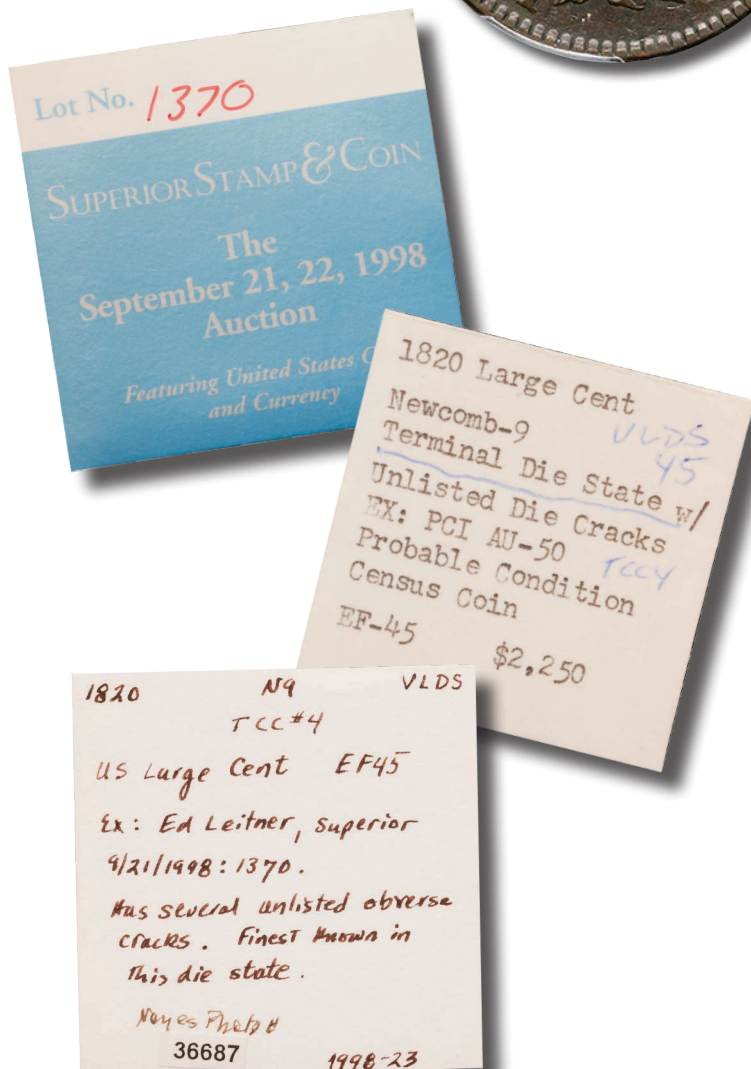 Lot No. 1370
SUPERIOR STAMP & COIN
The
September 21, 22, 1998
Auction
Featuring United States
and Currency
1820 Large Cent
Newcomb-9
VLDS
Terminal Die State w/
45
Unlisted Die Cracks
EX: PCI AU-50
TCC4
Probable Condition
Census Coin
EF-45
$2,250
1820 N9 VLDS
TCC #4
US Large Cent EF45
Ex: Ed Leitner, Superior
9/21/1998: 1370.
Has several unlisted obverse
cracks. Finest Known in
This die state.
Noyes Photo #
36687
1998-23